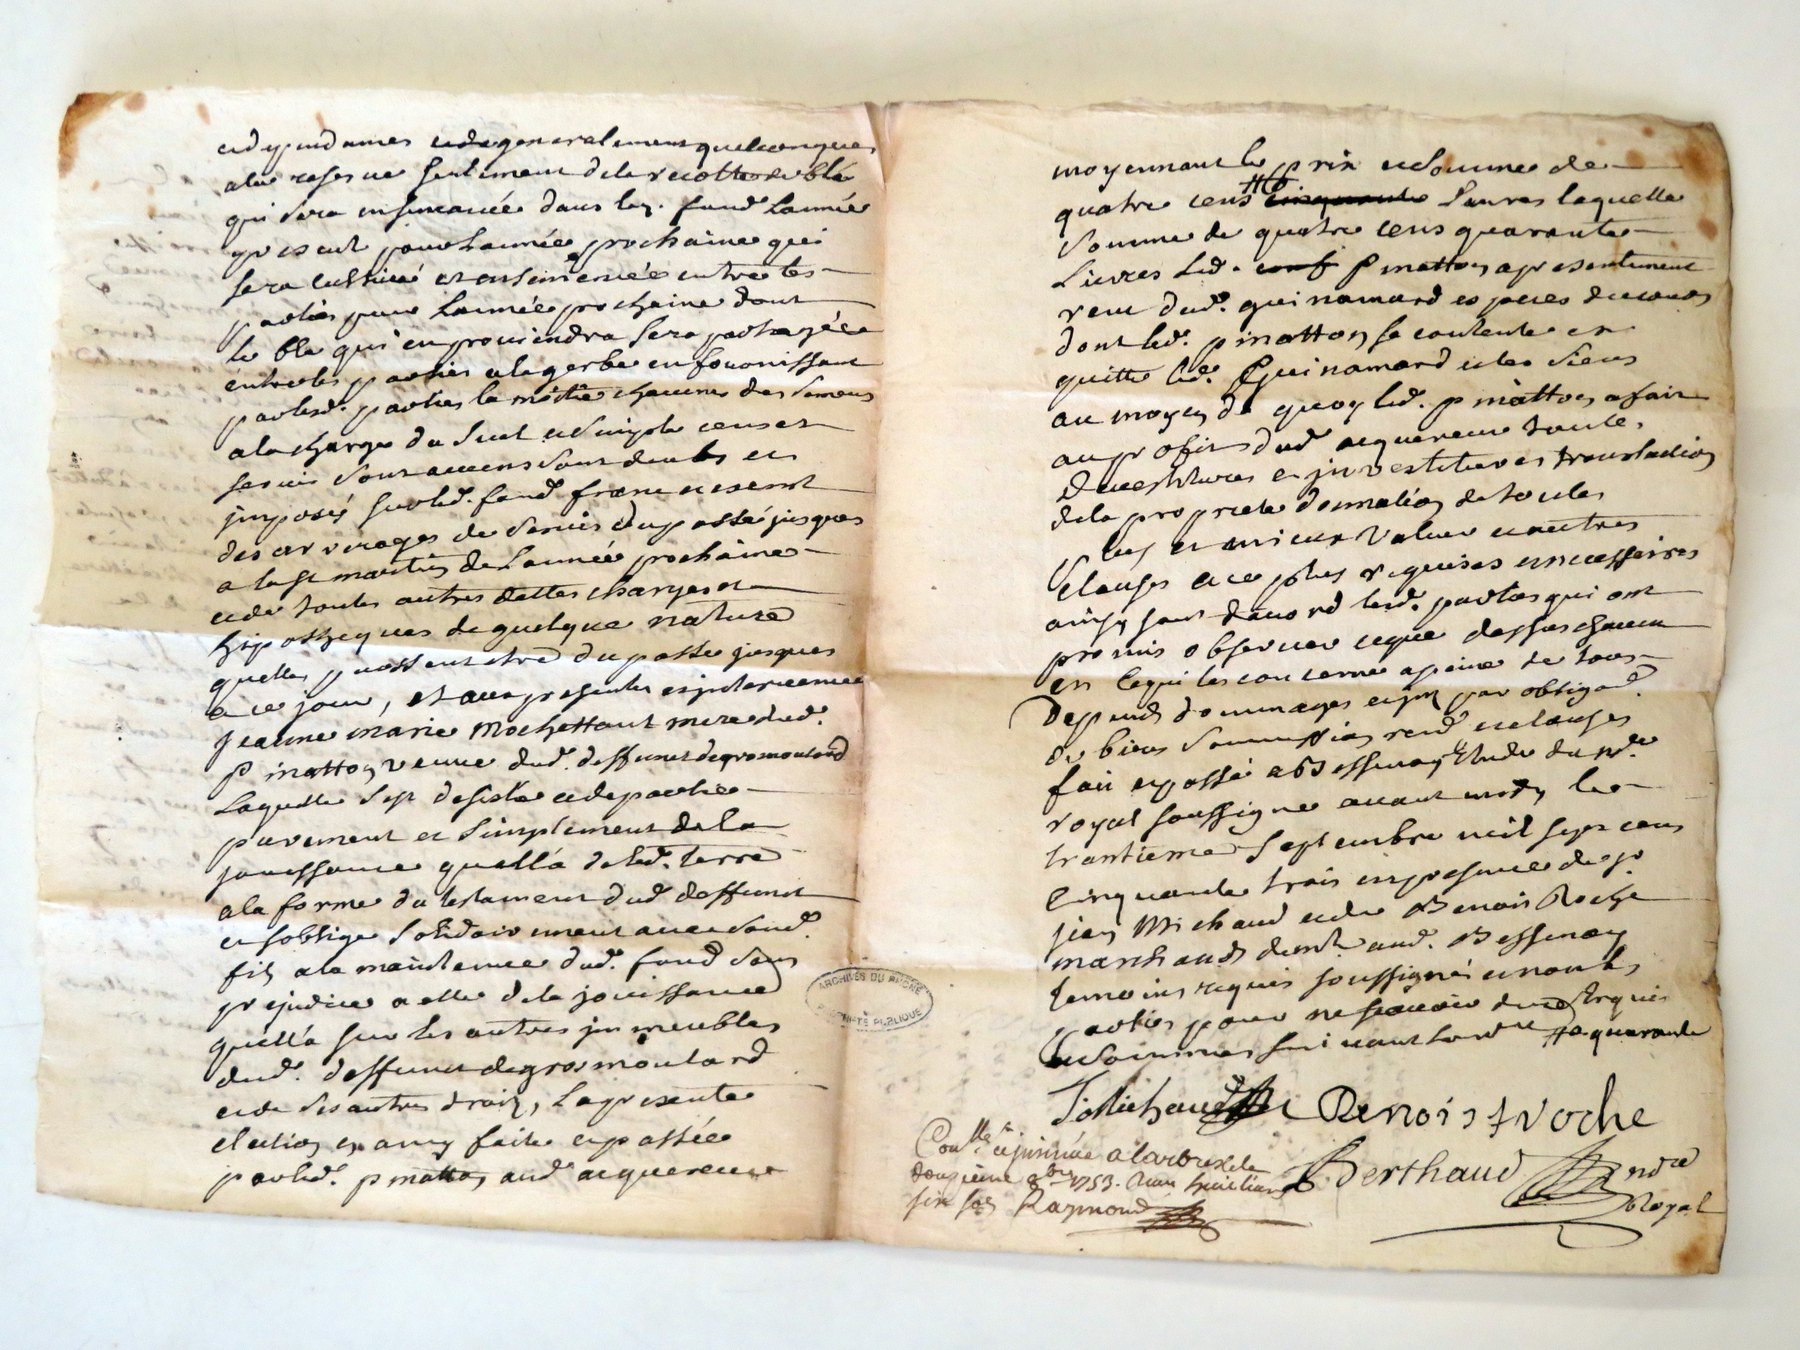 et dependances et de generalement quelconques
a la reserve seulement de la recolte de blé
qui sera ensemancée dans led. fond Lannée
present pour Lannée prochaine qui
sera cultivé et ensemencée entre les
parties pour Lannée prochaine dont
le blé qui en proviendra sera partagée
entre les parties a la gerbe en fournissant
par lesd. parties la moitié chacunes des semens
a la charge du seul et simple cens et
servis sont deubs et
imposés sur led. fond franc et exemt
des arrerages de servis du passé jusques
a la st martin de Lannée prochaine
et de toutes autres dettes charges et
hipotheques de quelque nature
quelles puissent etre du passé jusques
a ce jour, et aux presentes est intervenue
jeanne marie Mochettant mere dud.
Pinatton veuve dud. deffunt degrosmoulard
Laquelle sest desistée et departie
purement et simplement de la
jouissance quella de lad. terre
a la forme du testament dud deffunt
et soblige solidairement avec sond.
fils a la maintenue dud. fond sans
prejudice a elle de la jouissance
quella sur les autres immeubles
dud. deffunt degrosmoulard
et de ses autres droits, La presente
faitte et passée
par led. pinatton aud acquereur
moyennant le prix et somme de
quatre cens cinquante Livres laquelle
somme de quatre cens quarante
Livres Led. conf Pinatton a presentement
receu dud. guinamard especes de cours
dont led. pinatton se contente et
quitte led. Guinamard et les siens
au moyen de quoy led. pinatton a fait
au profit dud acquereur toutes
devestitures et investitures translation
de la propriete donnation de toutes
plus et mieux value et autres
Clauses a ce jointes requises et necessaires
ainsy sont d'accord lesd. parties qui ont
promis observer ce que dessus chacun
en ce qui les concerne a peine de tous
depends dommages par obligaon.
de biens soumission renon. et clauses
fait et passé a Bessenay Etude du nore.
royal soussigné avant midy le
trantieme Septembre mil sept cens
Cinquante trois en presence de sr.
jean Michaud et de Benois Roche
marchands dem.t aud. Bessenay
temoins requis soussignés et non les
parties pour ne scavoir de ce Enquis
et sommés suivant Lordce # quarante
J Michaud Benoist roche
Conllé et insinué a Larbresle le
douzieme 8bre 1753. Reçu
six sols Raymond
Berthaud nore
Royal
ARCHIVES DU RHÔNE
PROPRIÉTÉ PUBLIQUE